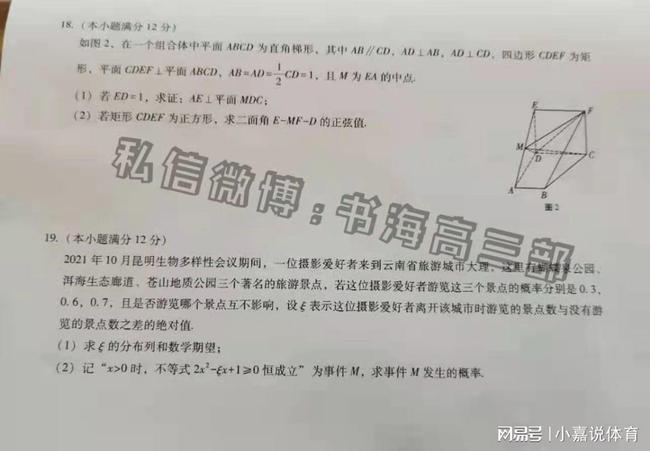 18. (本小题满分 12 分)
如图2，在一个组合体中平面 ABCD 为直角梯形，其中 AB∥CD，AD⊥AB，AD⊥CD，四边形 CDEF 为矩
形，平面 CDEF⊥平面 ABCD，AB=AD=1/2CD=1，且 M 为 EA 的中点.
(1) 若 ED=1，求证：AE⊥平面 MDC；
(2) 若矩形 CDEF 为正方形，求二面角 E-MF-D 的正弦值.
E
F
M
D
C
A
B
图2
私信微博：书海高三部
19. (本小题满分 12 分)
2021 年 10 月昆明生物多样性会议期间，一位摄影爱好者来到云南省旅游城市大理，这里有蝴蝶泉公园、
洱海生态廊道、苍山地质公园三个著名的旅游景点，若这位摄影爱好者游览这三个景点的概率分别是 0.3，
0.6，0.7，且是否游览哪个景点互不影响，设 ξ 表示这位摄影爱好者离开该城市时游览的景点数与没有游
览的景点数之差的绝对值.
(1) 求 ξ 的分布列和数学期望；
(2) 记“x>0 时，不等式 2x²-ξx+1≥0 恒成立”为事件 M，求事件 M 发生的概率.
网易号 | 小嘉说体育